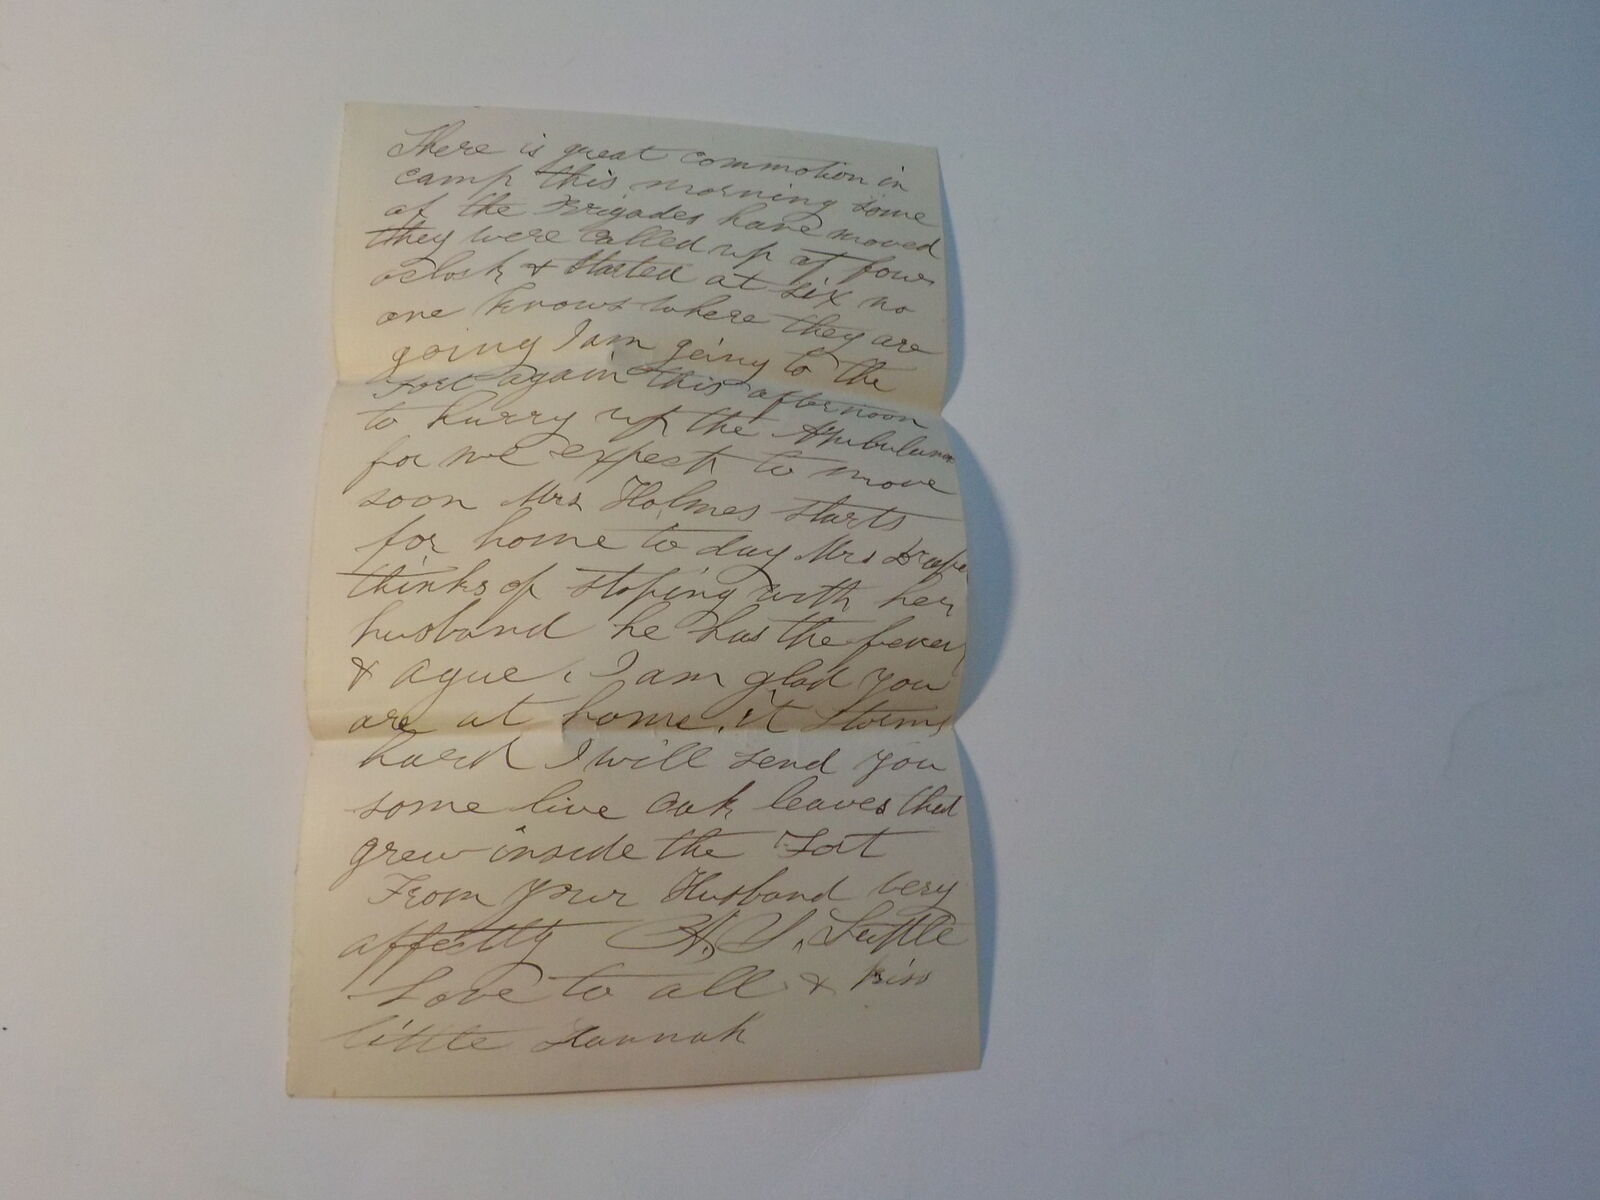 There is great commotion in
camp this morning some
of the Brigades have moved
they were called up at four
oclock & started at six no
one knows where they are
going I am going to the
Fort again this afternoon
to hurry up the Ambulance
for we expect to move
soon Mrs Holmes starts
for home to day Mrs Draper
thinks of stoping with her
husband he has the fever
& ague. I am glad you
are at home. it storms
hard I will send you
some live Oak leaves that
grew inside the Fort
From your Husband very
affectly A. S.
Love to all & kiss
little Hannah